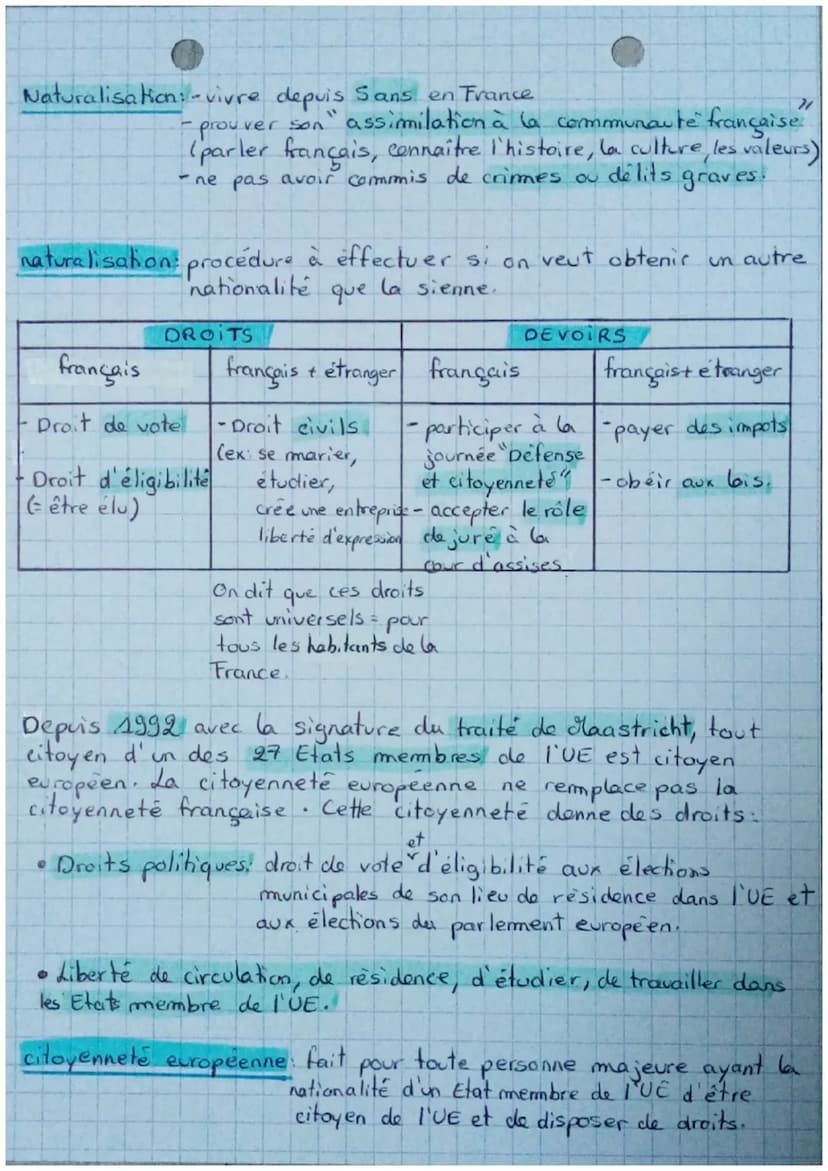 Naturalisation: - vivre depuis 5ans en France
- prouver son "assimilation à la communauté française"
(parler français, connaître l'histoire, la culture, les valeurs)
- ne pas avoir commis de crimes ou délits graves.
naturalisation: procédure à effectuer si on veut obtenir un autre
nationalité que la sienne.
DROITS
DEVOIRS
français
français + étranger
français
français + étranger
- Droit de vote
- Droit d'éligibilité
(= être élu)
- Droit civils
(ex: se marier,
étudier,
crée une entreprise
liberté d'expression
- participer à la
journée "Défense
et citoyenneté"
- accepter le rôle
de juré à la
cour d'assises
- payer des impots
- obéir aux lois.
On dit que ces droits
sont universels = pour
tous les habitants de la
France.
Depuis 1992 avec la signature du traité de Maastricht, tout
citoyen d'un des 27 Etats membres de l'UE est citoyen
européen. La citoyenneté européenne ne remplace pas la
citoyenneté française. Cette citoyenneté donne des droits:
• Droits politiques: droit de vote et d'éligibilité aux élections
municipales de son lieu de résidence dans l'UE et
aux élections du parlement européen.
• Liberté de circulation, de résidence, d'étudier, de travailler dans
les Etats membre de l'UE.
citoyenneté européenne: fait pour toute personne majeure ayant la
nationalité d'un Etat membre de l'UE d'être
citoyen de l'UE et de disposer de droits.